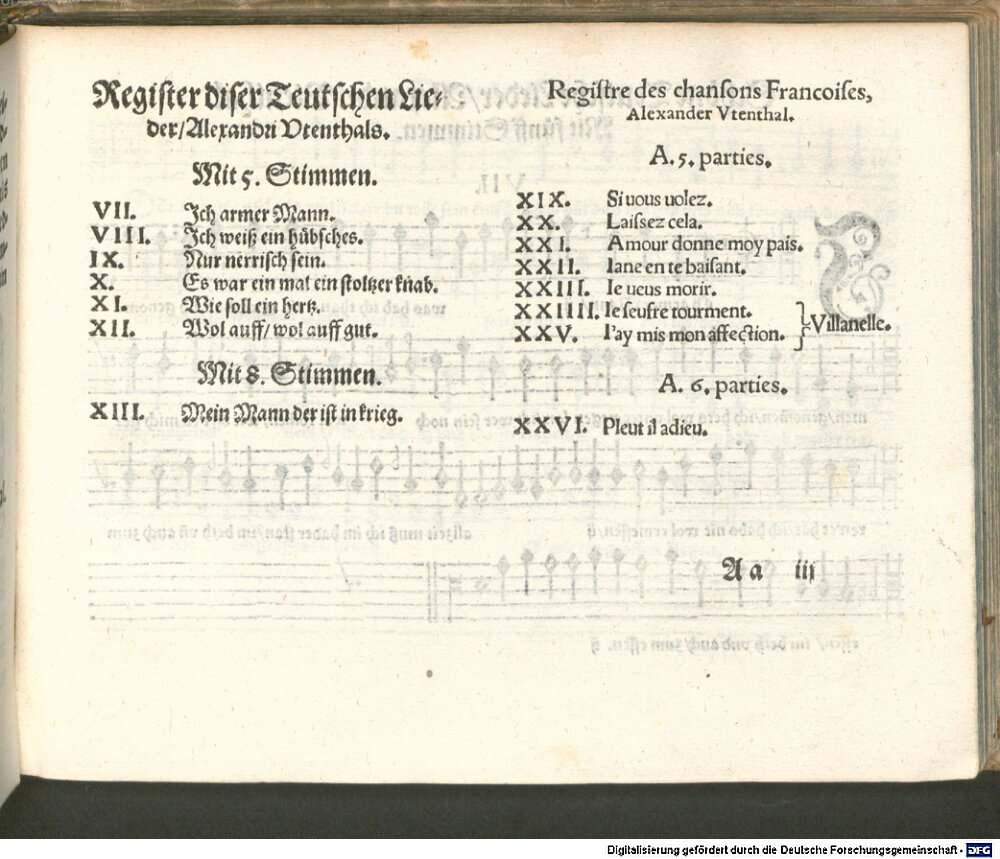 Register diser Teutschen Lie-
der/Alexandri Vtenthals.
Mit 5. Stimmen.
VII. Ich armer Mann.
VIII. Ich weiß ein hübsches.
IX. Nur nerrisch sein.
X. Es war ein mal ein stoltzer knab.
XI. Wie soll ein hertz.
XII. Wol auff/ wol auff gut.
Mit 8. Stimmen.
XIII. Mein Mann der ist in krieg.
Registre des chansons Francoises,
Alexander Vtenthal.
A. 5. parties.
XIX. Si uous uolez.
XX. Laissez cela.
XXI. Amour donne moy pais.
XXII. Iane en te baisant.
XXIII. Ie ueus morir.
XXIIII. Ie seufre tourment.
XXV. I'ay mis mon affection. } Villanelle.
A. 6. parties.
XXVI. Pleut il adieu.
Aa iij
Digitalisierung gefördert durch die Deutsche Forschungsgemeinschaft - DFG